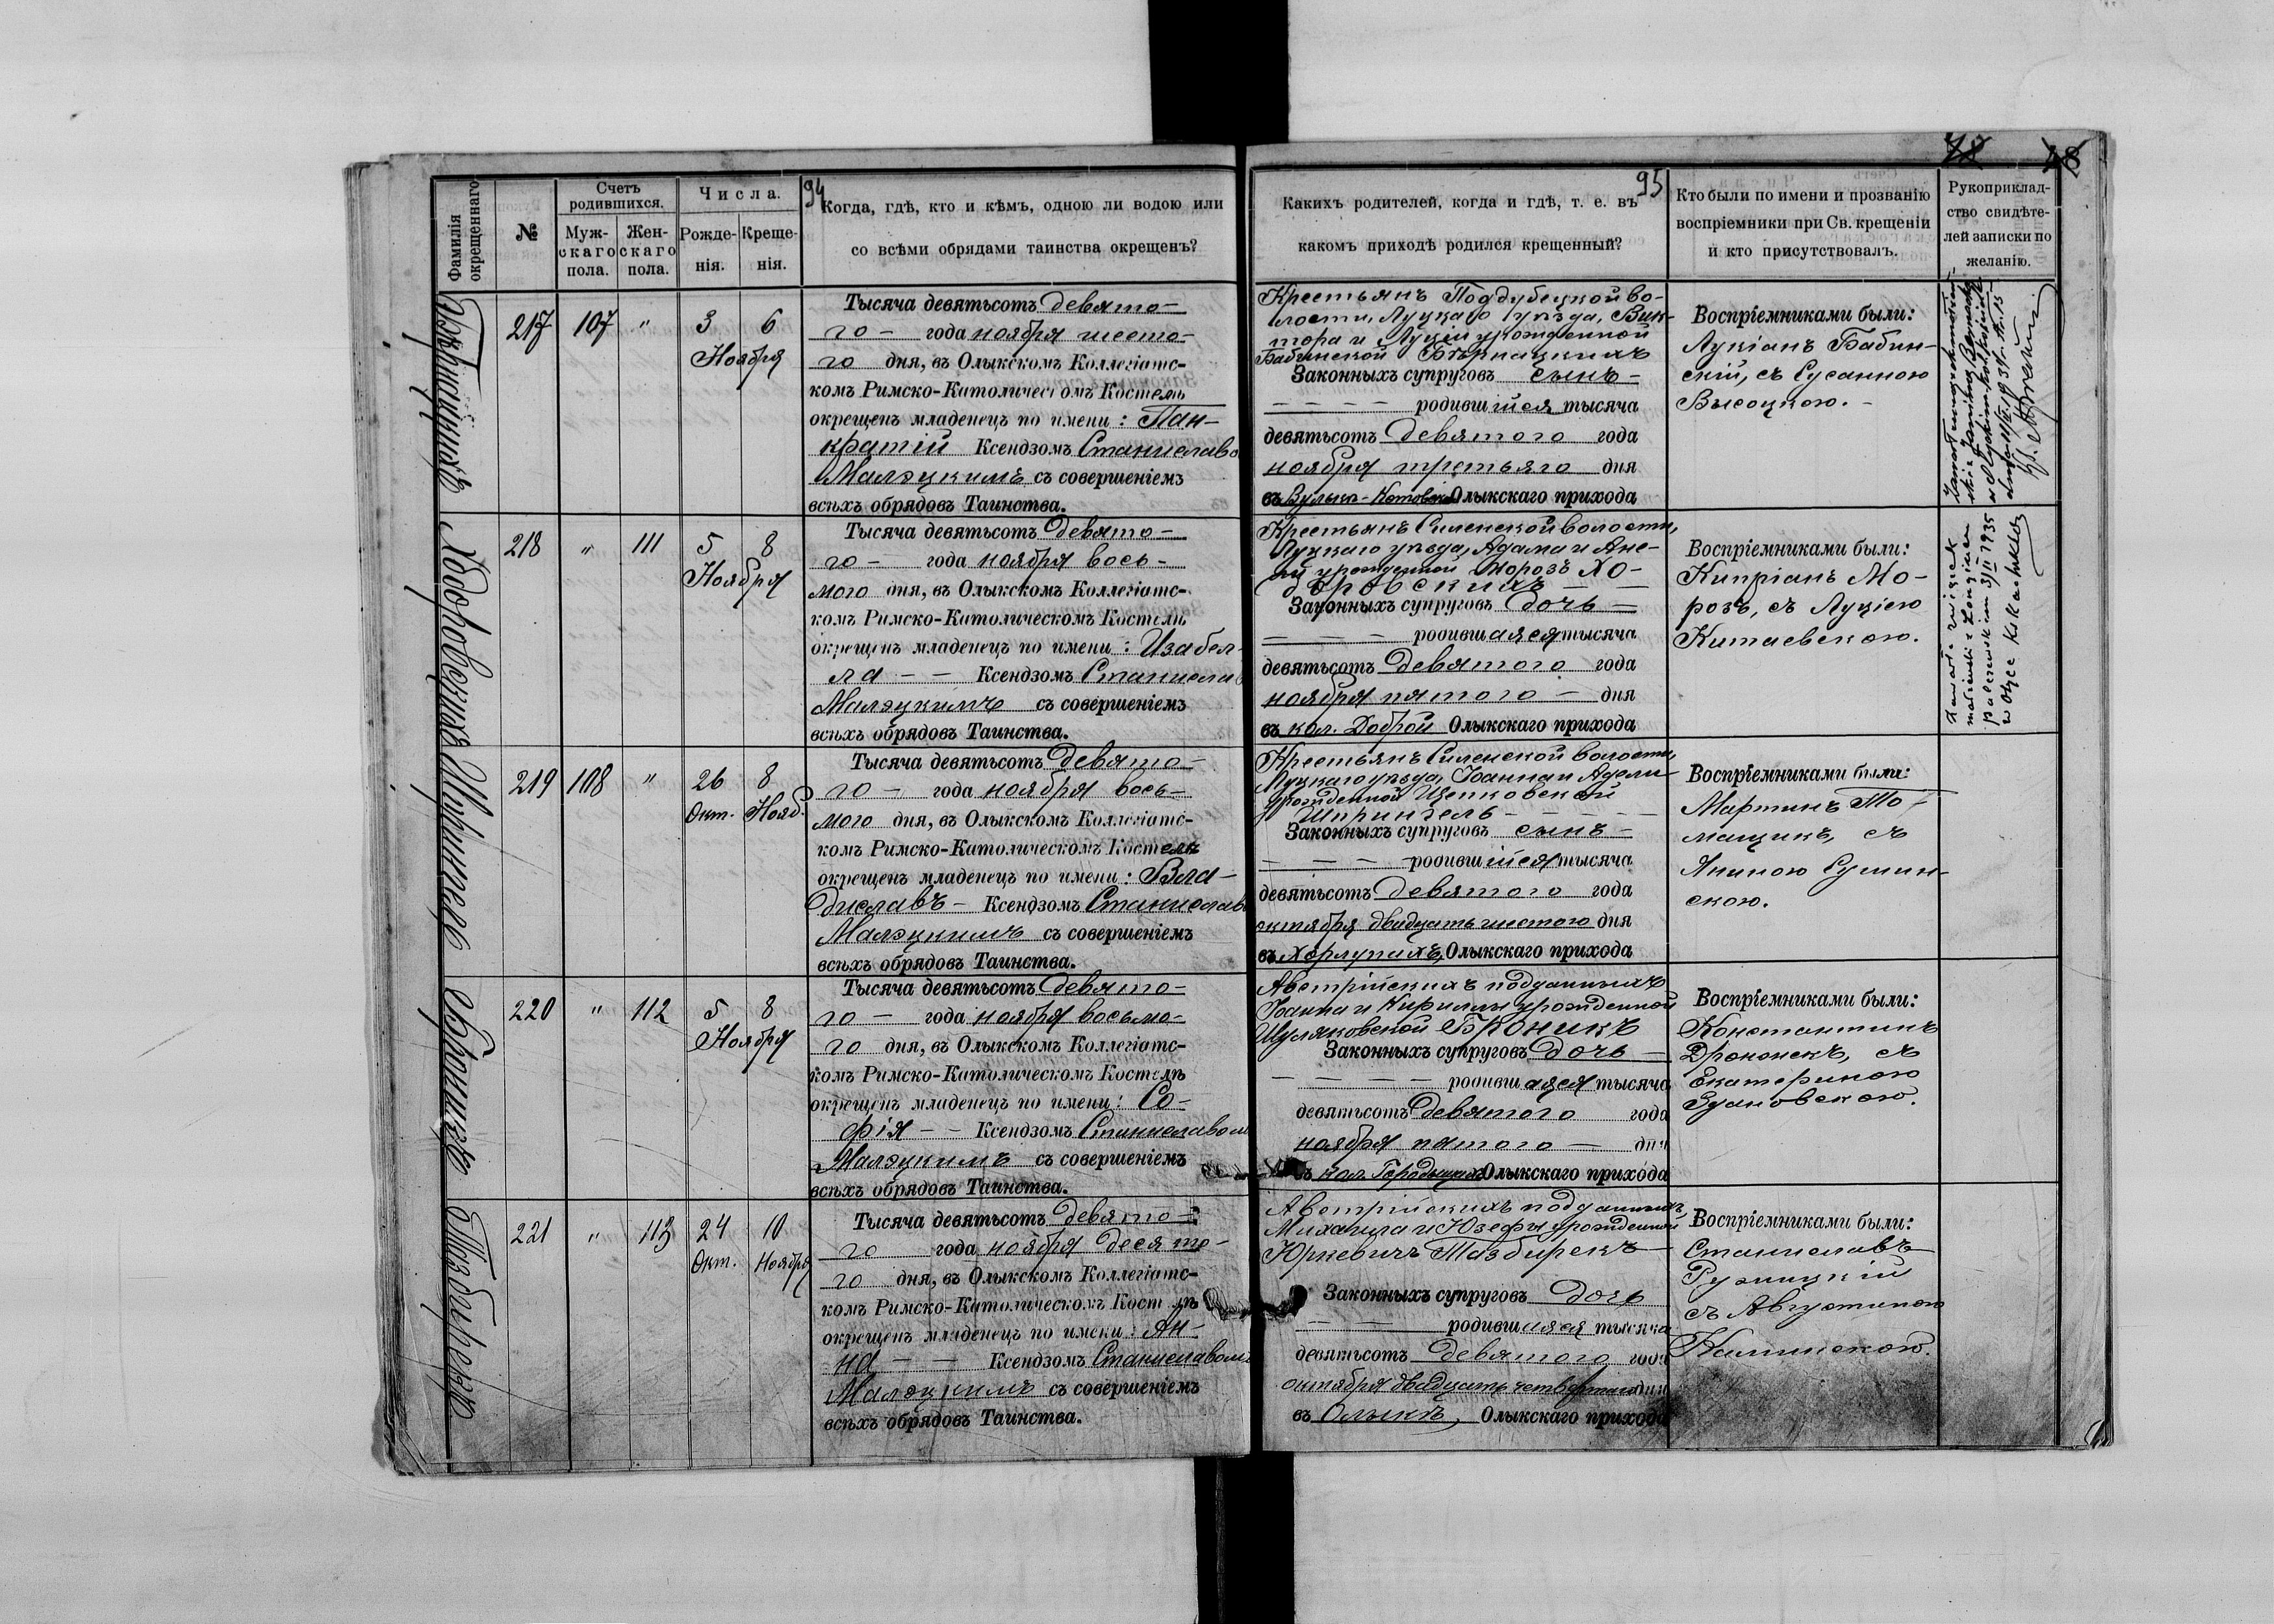 94
95
Фамилія
окрещеннаго
№
Счетъ
родившихся.
Муж-
скаго
пола.
Жен-
скаго
пола.
Числа.
Рожде-
нія.
Креще-
нія.
Когда, гдѣ, кто и кѣмъ, одною ли водою или
со всѣми обрядами таинства окрещенъ?
Какихъ родителей, когда и гдѣ, т. е. въ
какомъ приходѣ родился крещенный?
Кто были по имени и прозванію
воспріемники при Св. крещеніи
и кто присутствовалъ.
Рукоприклад-
ство свидѣте-
лей записки по
желанію.
217 107 " 3 6
Ноября
Тысяча девятьсотъ девято-
го - года ноября шесто-
го дня, въ Олыкскомъ Коллегіатс-
комъ Римско-Католическомъ Костелѣ
окрещенъ младенецъ по имени: Пан-
кратій Ксендзомъ Станиславо
Малэцкимъ съ совершеніемъ
всѣхъ обрядовъ Таинства.
Крестьянъ Поддубецкой во-
лости, Луцкаго уѣзда, Вик-
тора и Луціи урожденной
Бабинской Бѣрнацкихъ
Законныхъ супруговъ сынъ -
родившійся тысяча
девятьсотъ девятого года
ноября третьяго дня
въ Олыкскаго прихода
Воспріемниками были:
Лукіанъ Бабин-
скій, съ Сусанною
Высоцкою. -
218 " 111 5 8
Ноября
Ходоровскихъ
Тысяча девятьсотъ девято-
го - года ноября вось-
мого дня, въ Олыкскомъ Коллегіатс-
комъ Римско-Католическомъ Костелѣ
окрещенъ младенецъ по имени: Изабел-
ла - - Ксендзомъ Станисла
Малэцкимъ съ совершеніемъ
всѣхъ обрядовъ Таинства.
Крестьянъ Силенской волости,
Луцкаго уѣзда, Адама и Ане-
ли урожденной Морозъ Хо-
доровскихъ
Законныхъ супруговъ дочь -
родившаяся тысяча
девятьсотъ девятого года
ноября пятого - дня
въ кол. Доброй Олыкскаго прихода
Воспріемниками были:
Кипріанъ Мо-
розъ, съ Луціею
Китаевскою.
Zawarła związek
małżeński z Longinem
w Ołyce
219 108 " 26 8
Окт. Нояб.
Шпрингель
Тысяча девятьсотъ девято-
го - года ноября вось-
мого дня, въ Олыкскомъ Коллегіатс-
комъ Римско-Католическомъ Костелѣ
окрещенъ младенецъ по имени: Вла-
диславъ - Ксендзомъ Станислав
Малэцкимъ съ совершеніемъ
всѣхъ обрядовъ Таинства.
Крестьянъ Силенской волости,
Луцкаго уѣзда, Іоанна и Адели
урожденной Щепковской
Шпрингель - - -
Законныхъ супруговъ сынъ -
родившійся тысяча
девятьсотъ девятого года
октября двадцать шестого дня
въ Хорлупахъ, Олыкскаго прихода
Воспріемниками были:
Мартинъ То-
мащикъ, съ
Яниною Сумин-
скою.
220 " 112 5 8
Ноября
Броникъ
Тысяча девятьсотъ девято-
го - года ноября восьмо-
го дня, въ Олыкскомъ Коллегіатс-
комъ Римско-Католическомъ Костелѣ
окрещенъ младенецъ по имени: Со-
фія - - Ксендзомъ Станиславом
Малэцкимъ съ совершеніемъ
всѣхъ обрядовъ Таинства.
Австрійскихъ подданныхъ
Іоанна и Кириллы урожденной
Шуляковской Броникъ
Законныхъ супруговъ дочь -
родившаяся тысяча
девятьсотъ девятого года
ноября пятого - дня
въ кол. Олыкскаго прихода
Воспріемниками были:
Константинъ
съ
Екатериною
Здановскою.
221 " 113 24 10
Окт. Ноября
Тазбирекъ
Тысяча девятьсотъ девято-
го года ноября десято-
го дня, въ Олыкскомъ Коллегіатс-
комъ Римско-Католическомъ Костелѣ
окрещенъ младенецъ по имени: Ан-
на - - Ксендзомъ Станиславомъ
Малэцкимъ съ совершеніемъ
всѣхъ обрядовъ Таинства.
Австрійскихъ подданныхъ,
Михаила и Юзефы урожденной
Юркевичъ Тазбирекъ
Законныхъ супруговъ дочь
родившаяся тысяча
девятьсотъ девятого года
октября двадцать четвертаго дня
въ Олыкѣ, Олыкскаго прихода
Воспріемниками были:
Станиславъ
Ружицкій
съ Августиною
Калинскою.